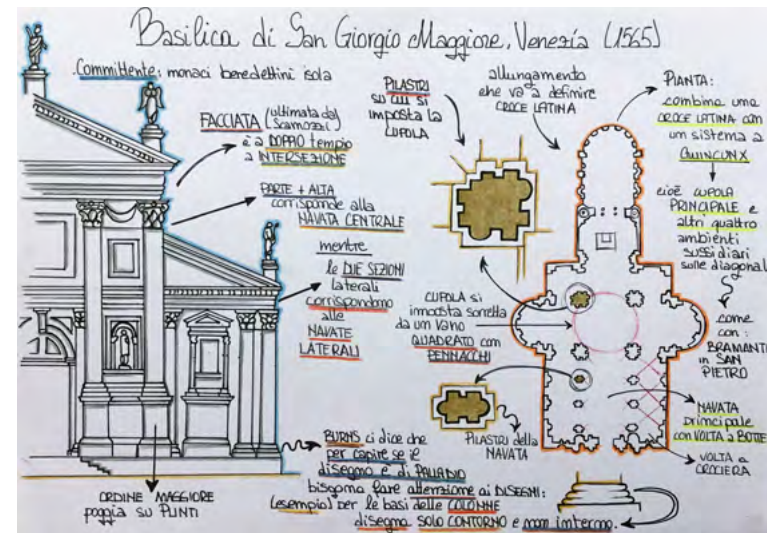 Basilica di San Giorgio Maggiore, Venezia (1565)
Committente: monaci benedettini isola
FACCIATA (ultimata da Scamozzi)
è a DOPPIO tempio
a INTERSEZIONE
PARTE + ALTA
corrisponde alla
NAVATA CENTRALE
mentre
le DUE SEZIONI
laterali
corrispondono
alle
NAVATE
LATERALI
ORDINE MAGGIORE
poggia su PLINTI
PILASTRI
su cui si
imposta la
CUPOLA
allungamento
che va a definire
CROCE LATINA
PIANTA:
combina una
CROCE LATINA con
un sistema a
QUINCUNX
cioè CUPOLA
PRINCIPALE e
altri quattro
ambienti
sussidiari
sulle diagonali
come
con:
BRAMANTE
in SAN
PIETRO
CUPOLA si
imposta sorretta
da un vano
QUADRATO con
PENNACCHI
PILASTRI della
NAVATA
NAVATA
principale
con VOLTA a BOTTE
VOLTA a
CROCIERA
BURNS ci dice che
per capire se il
disegno è di PALLADIO
bisogna fare attenzione ai DISEGNI:
(esempio) per le basi delle COLONNE
disegna SOLO CONTORNO e non interno.